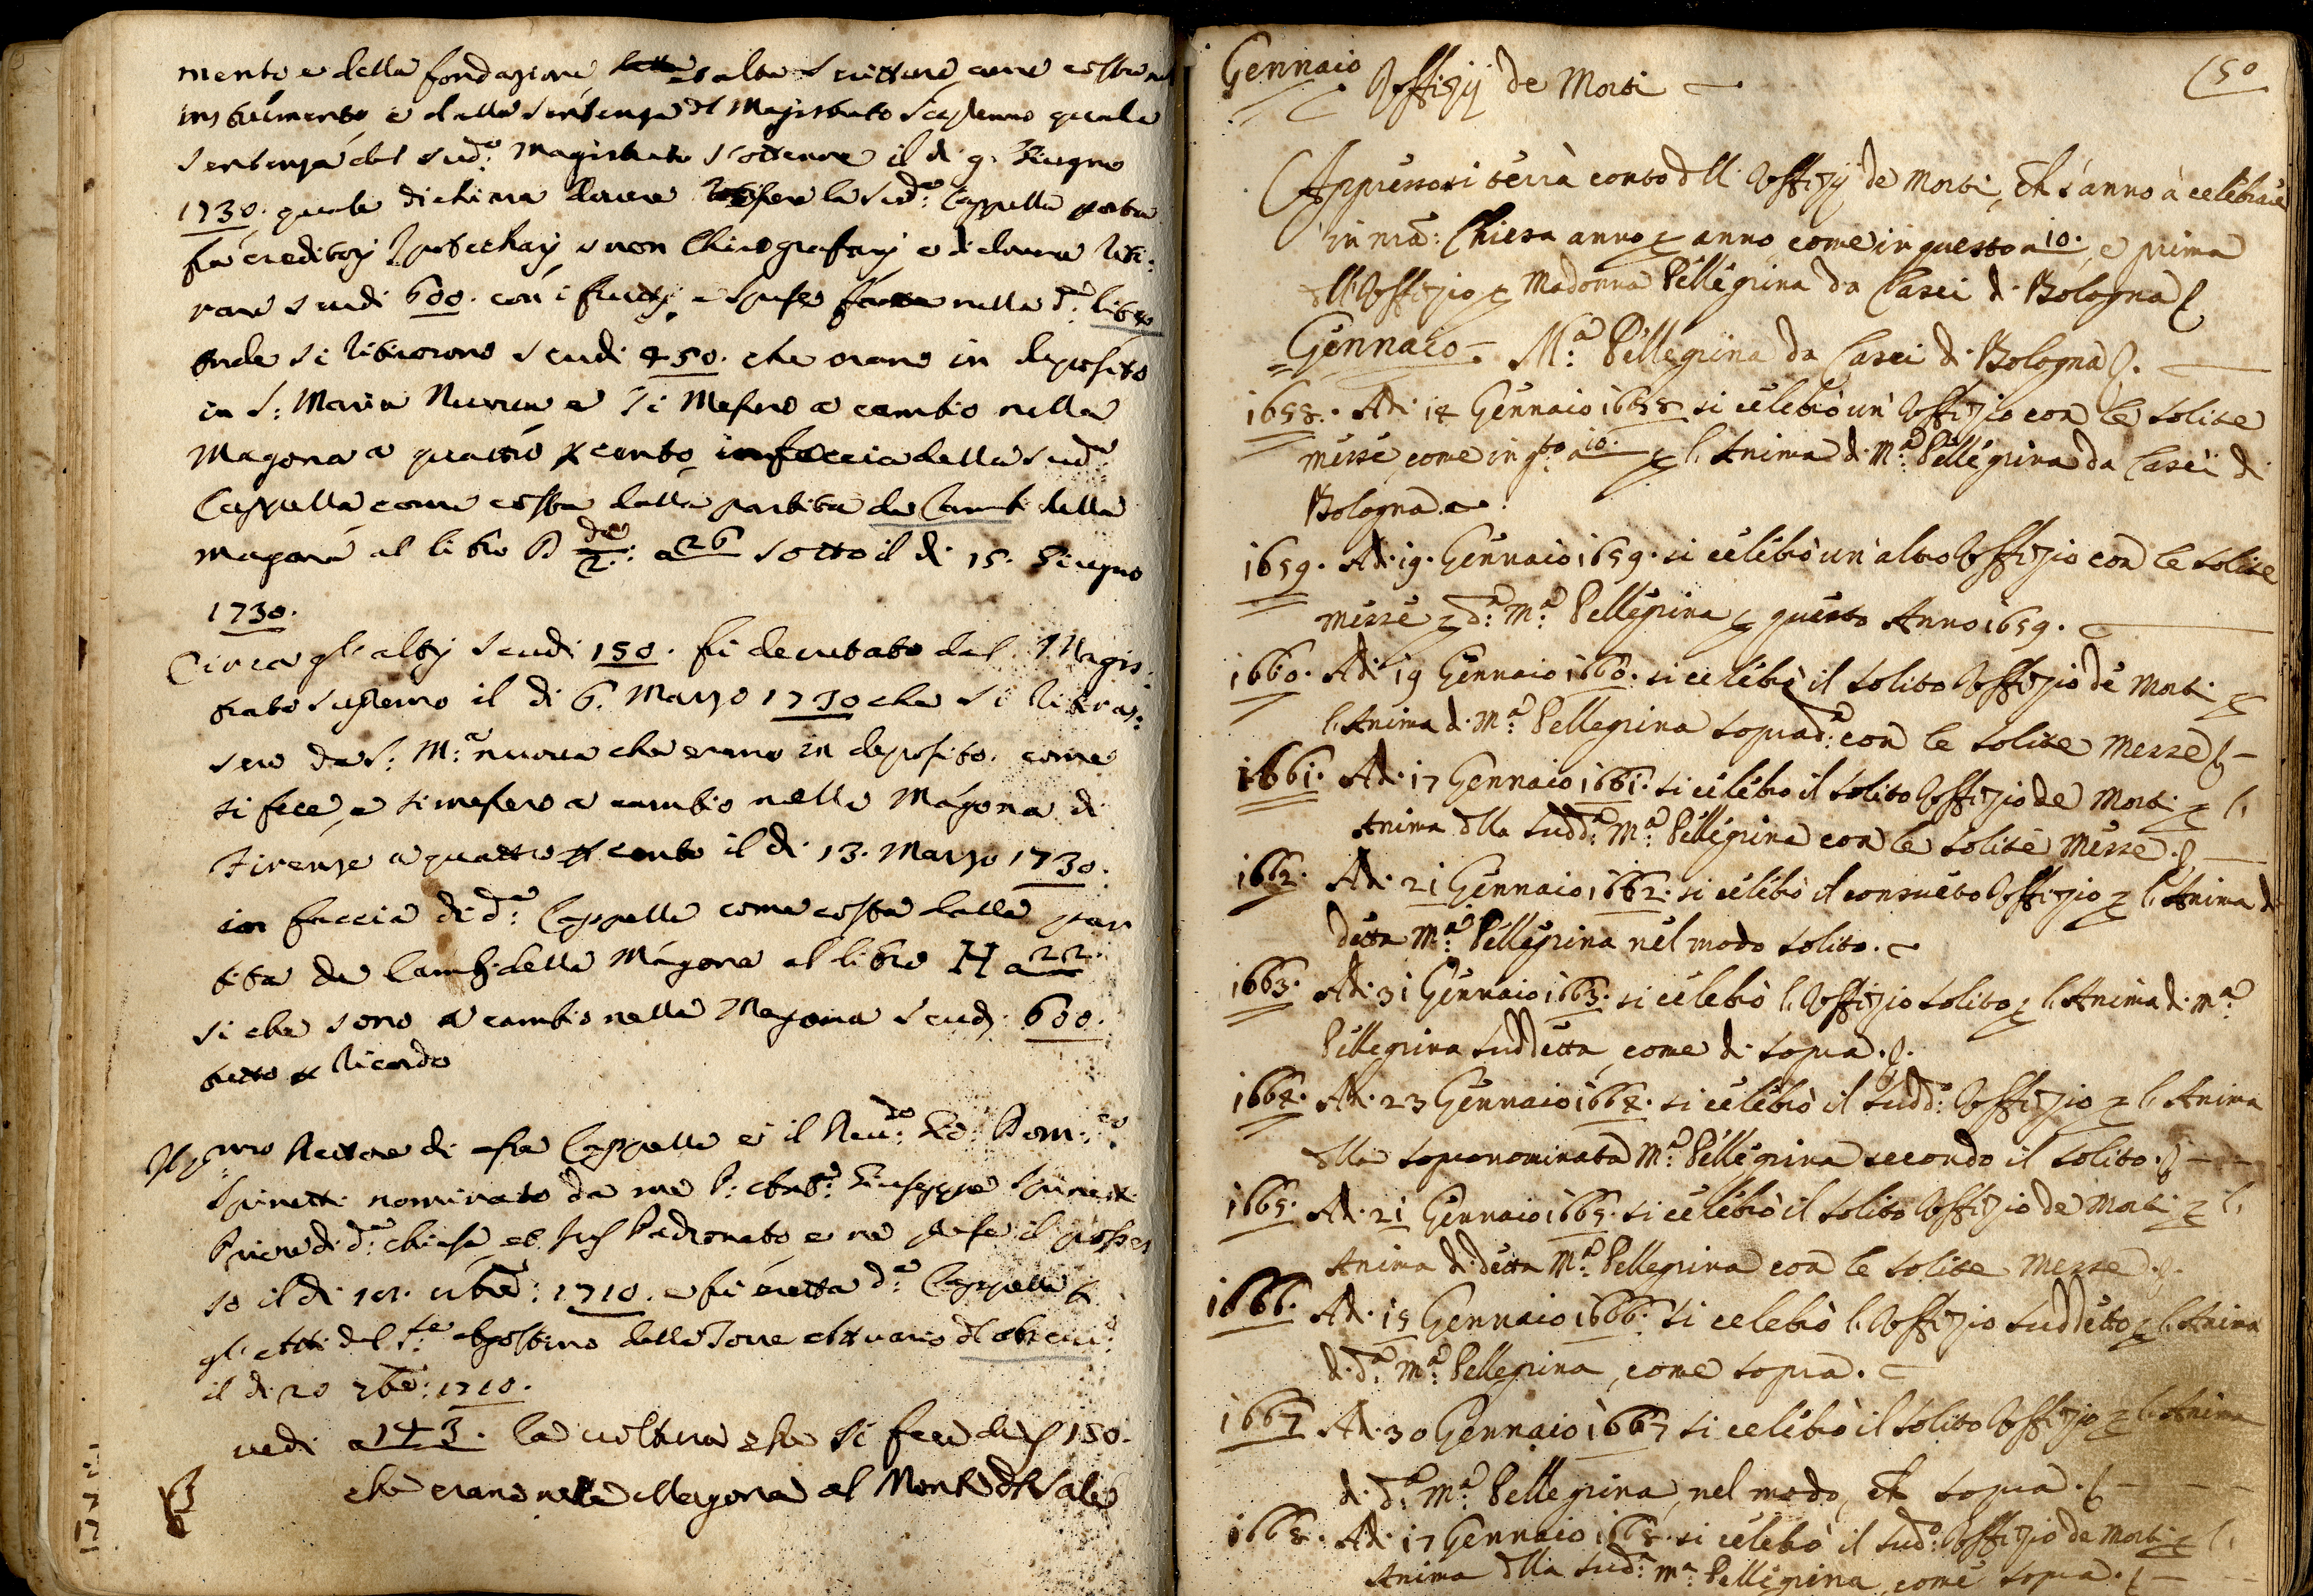 mento e della fondazione altre scritture come costa nel
instrumento e dalla sentenza dl Magistrato Supremo quale
sentenza del sud:o Magistrato s'ottenne il di 9. Giugno
1730. quale dichiara dovere la sud:a Cappella
fra creditorj Ipotecharj e non Chirografarj e di dover riti:
rare scudi 600. con i frutti e spese fatte nella d:a lite
onde si ritirorono scudi 450. che erano in deposito
in S: Maria Nuova e si messero a cambio nella
Magona a quattro p cento in faccia della sud:a
Cappella come costa dalla partita de Cambi della
magona al libro a 26 sotto il di 15. Giugno
1730.
Circa gl'altrj scudi 150. fu decretato dal Magis:
trato supremo il di 6. Marzo 1730 che si ritiras:
sero da S: M:a nuova che erano in deposito. come
si fece, e si messero a cambio nella Magona di
Firenze a quattro p cento il di 13. Marzo 1730.
in faccia di d:a Cappella come costa dalla par
tita de Cambi della Magona al libro H a 22.
si che sono a cambio nella Magona scudi 600.
tutto p ricordo
Il p:mo Rettore di essa Cappella è il Reu:do Dom:co
Spinetti nominato da me Giuseppe Spinetti
Priore di d:a chiesa et Jus Padronato e ne prese il posses
so il di 1710. e fu eretta d:a Cappella p
gl'atti del Agostino della Torre Attuario dl
il di 20 1710.
vedi a 143. la voltura che si fece de 150.
che erano nella Magona al Monte dl Sale
Gennaio Offizij de Morti
150
Appresso si terrà conto dlli Offizij de Morti, ch s'anno à celebrare
in nra: Chiesa anno p anno, come in questo a 10., e prima
dll'Offizio p Madonna Pellegrina da Casei d. Bologna
Gennaio. M:a Pellegrina da Casei d. Bologna.
1658. Ad. 14 Gennaio 1658 si celebrò un' Offizio con le solite
messe, come in q:to a 10. p l'Anima d. M:a Pellegrina da Casei di
Bologna.
1659. Ad. 19. Gennaio 1659. si celebrò un' altro Offizio con le solite
messe p d:a M:a Pellegrina p questo Anno 1659.
1660. Ad. 19 Gennaio 1660. si celebrò il solito Offizio de Morti p
l'Anima d. M:a Pellegrina soprad:a con le solite Messe
1661. Ad. 17 Gennaio 1661. si celebrò il solito Offizio de Morti p l'
Anima dlla sudd:a M:a Pellegrina con le solite Messe.
1662. Ad. 21 Gennaio 1662. si celebrò il consueto Offizio p l'Anima d.
detta M:a Pellegrina nel modo solito.
1663. Ad. 31 Gennaio 1663. si celebrò l'Offizio solito p l'Anima d. M:a
Pellegrina suddetta, come di sopra.
1664. Ad. 23 Gennaio 1664. si celebrò il sudd:o Offizio p l'Anima
dlla sopranominata M:a Pellegrina secondo il solito.
1665. Ad. 21 Gennaio 1665. si celebrò il solito Offizio de Morti p l'
Anima d. detta M:a Pellegrina con le solite Messe.
1666. Ad. 15 Gennaio 1666. si celebrò l'Offizio suddetto p l'Anima
d. d:a M:a Pellegrina, come sopra.
1667 Ad. 30 Gennaio 1667 si celebrò il solito Offizio p l'Anima
d. d:a M:a Pellegrina, nel modo, ch sopra.
1668. Ad. 17 Gennaio 1668. si celebrò il sud:o Offizio de Morti p l'
Anima dlla sud:a M:a Pellegrina, come sopra.